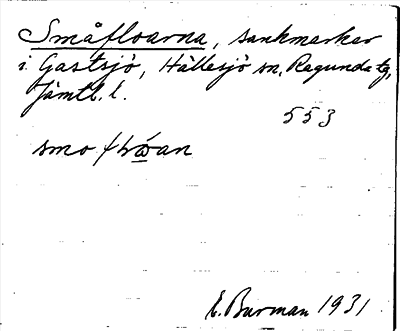 Småfloarna, sankmarker
i Gastsjö, Hällesjö sn, Ragunda tg,
Jämtl. l.
553
smo
E. Burman 1931